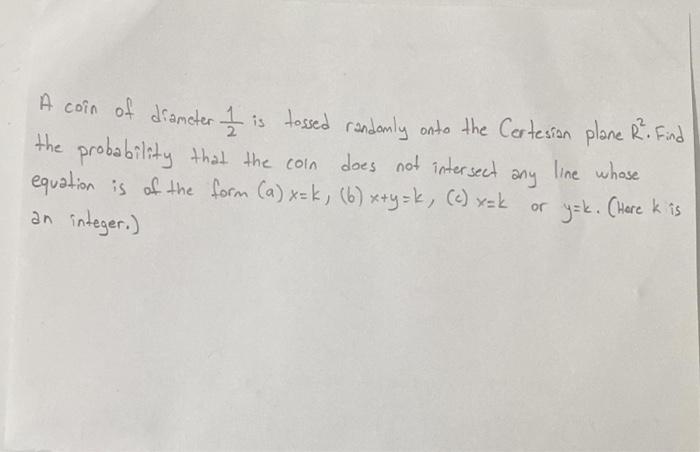 A coin of diameter 1/2 is tossed randomly onto the Cartesian plane R². Find
the probability that the coin does not intersect any line whose
equation is of the form (a) x=k, (b) x+y=k, (c) x=k or y=k. (Here k is
an integer.)